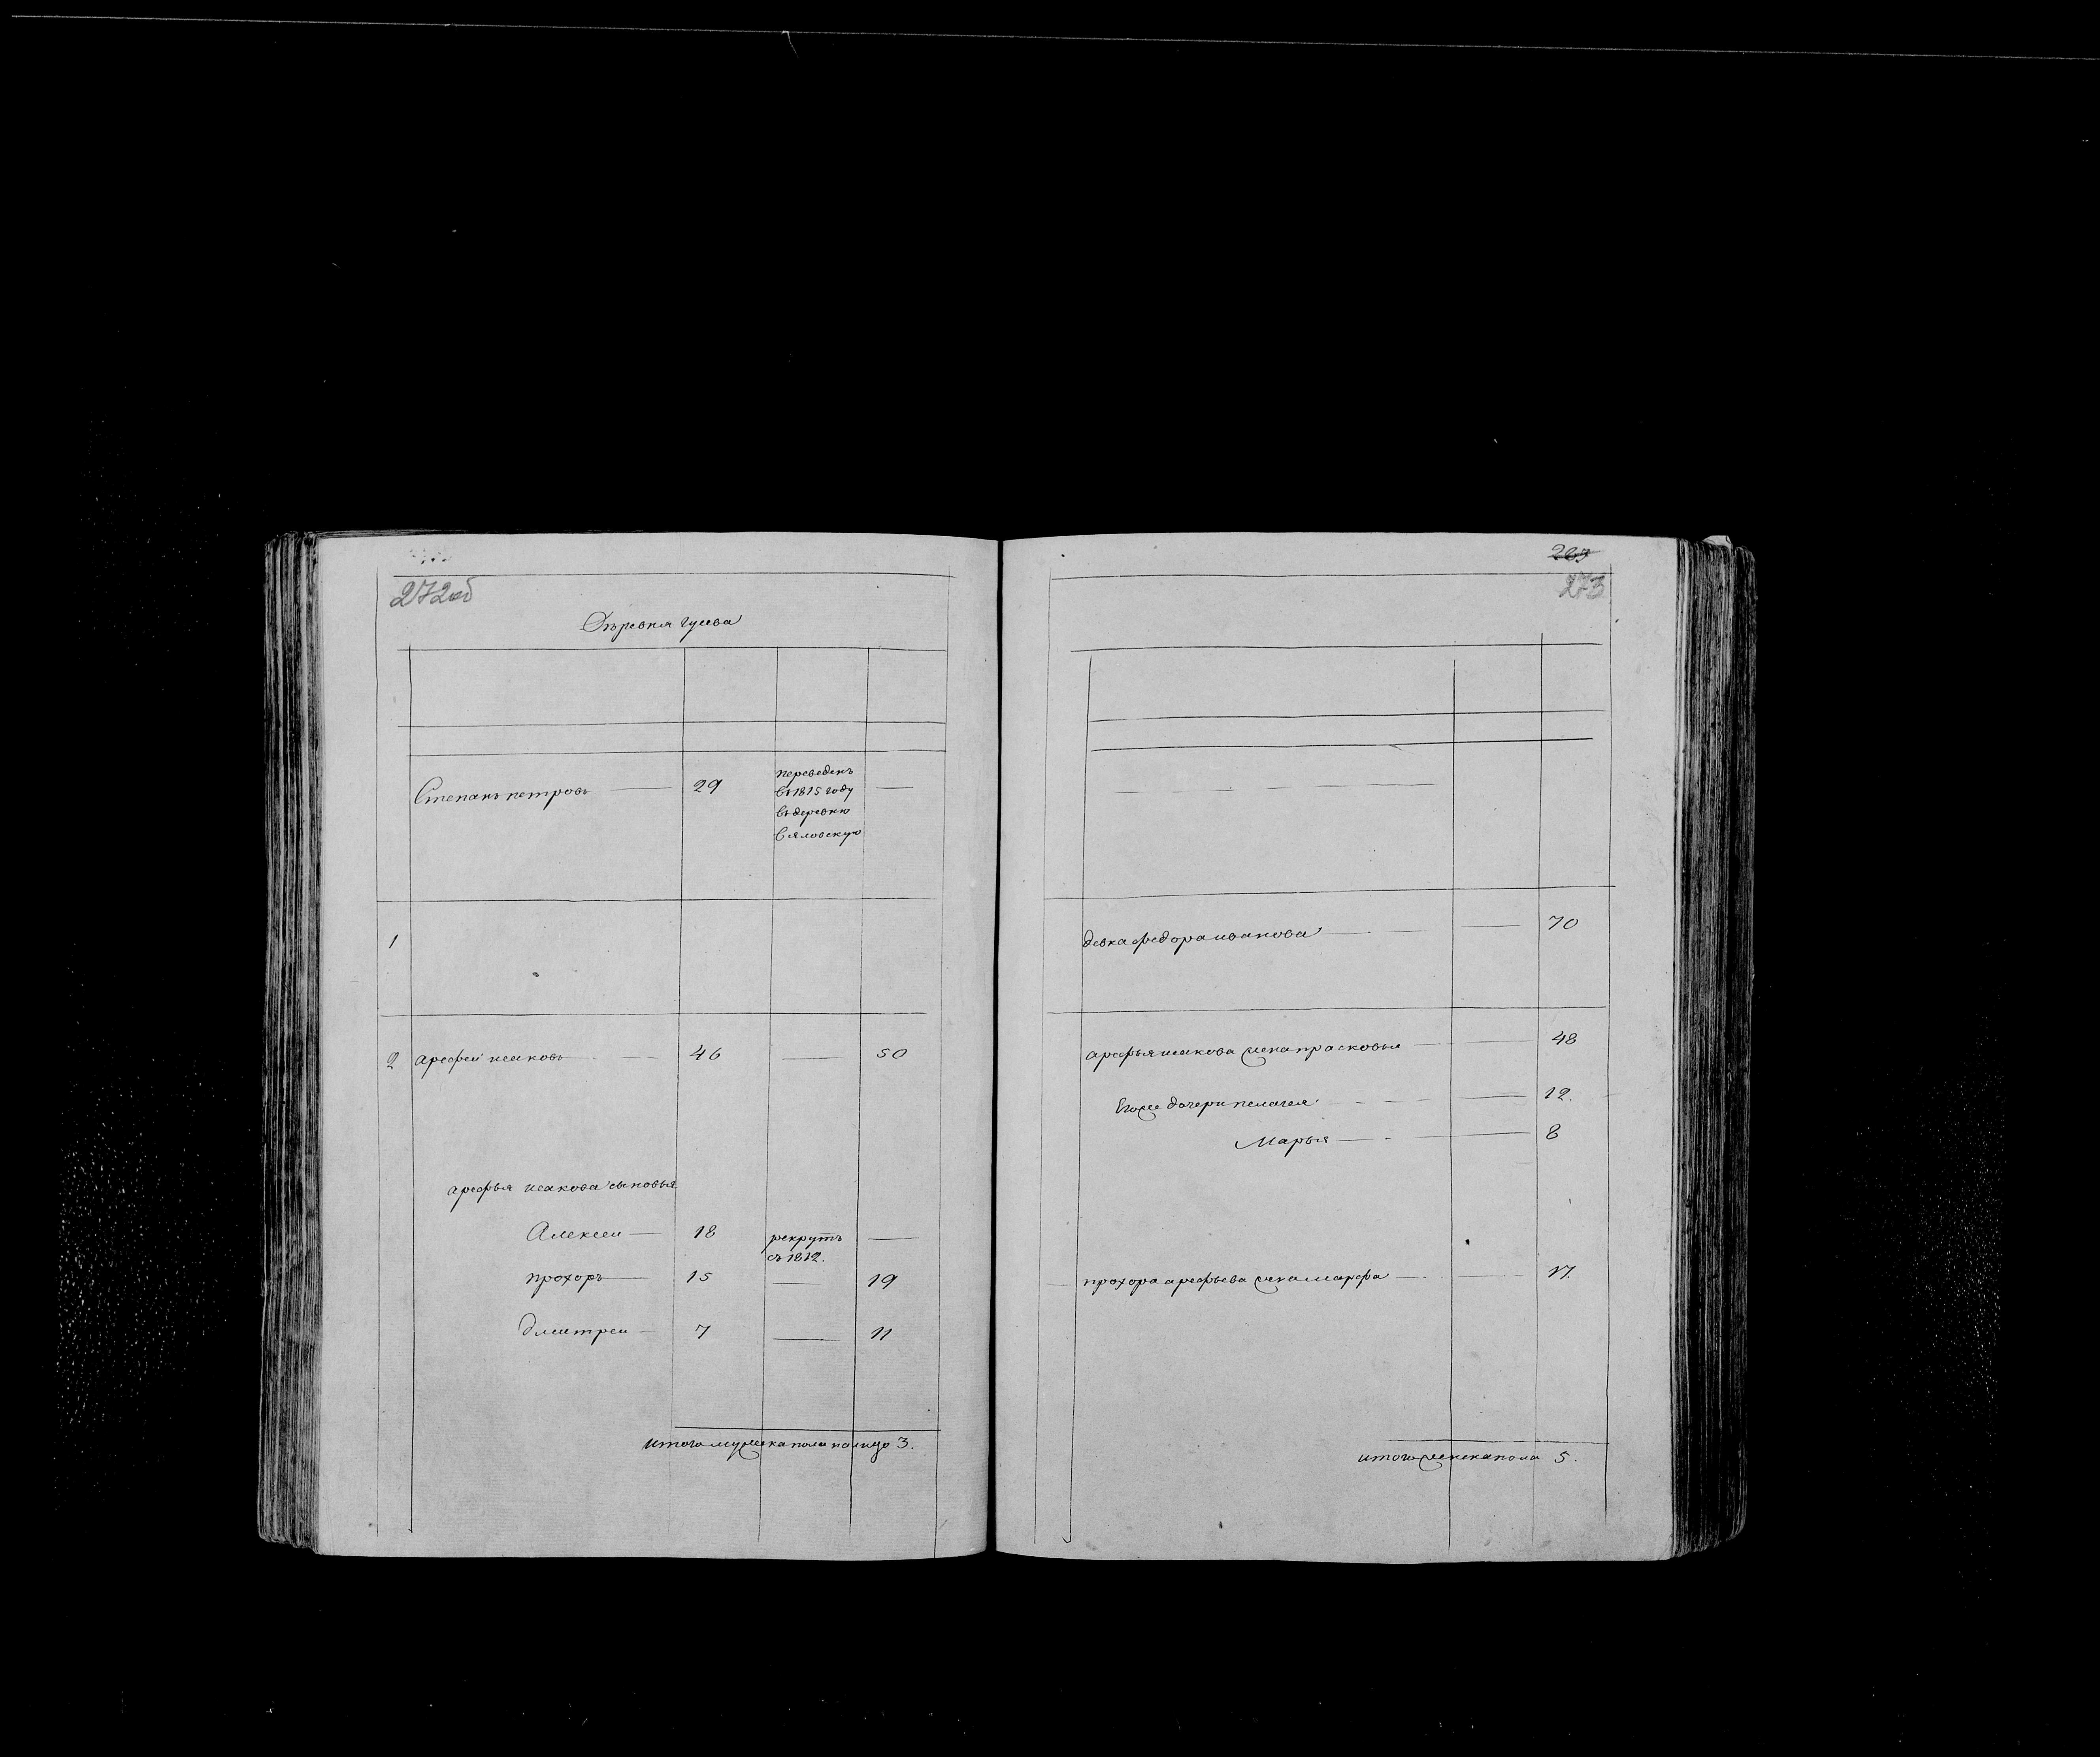 272об
Деревня гусева
Степанъ петровъ 29 переведенъ
въ 1815 году
въ деревню
Вяловскую
1
2 арефей исаковъ 46 50
арефья исакова сыновья
Алексеи 18 рекрутъ
съ 1812.
прохоръ 15 19
дмитреи 7 11
итого мужеска пола на лицо 3.
269
273
девка федора иванова 70
арефья исакова жена прасковья 48
Егоже дочери пелагея 12.
Марья 8
прохора арефьева жена марфа 17.
итого женска пола 5.